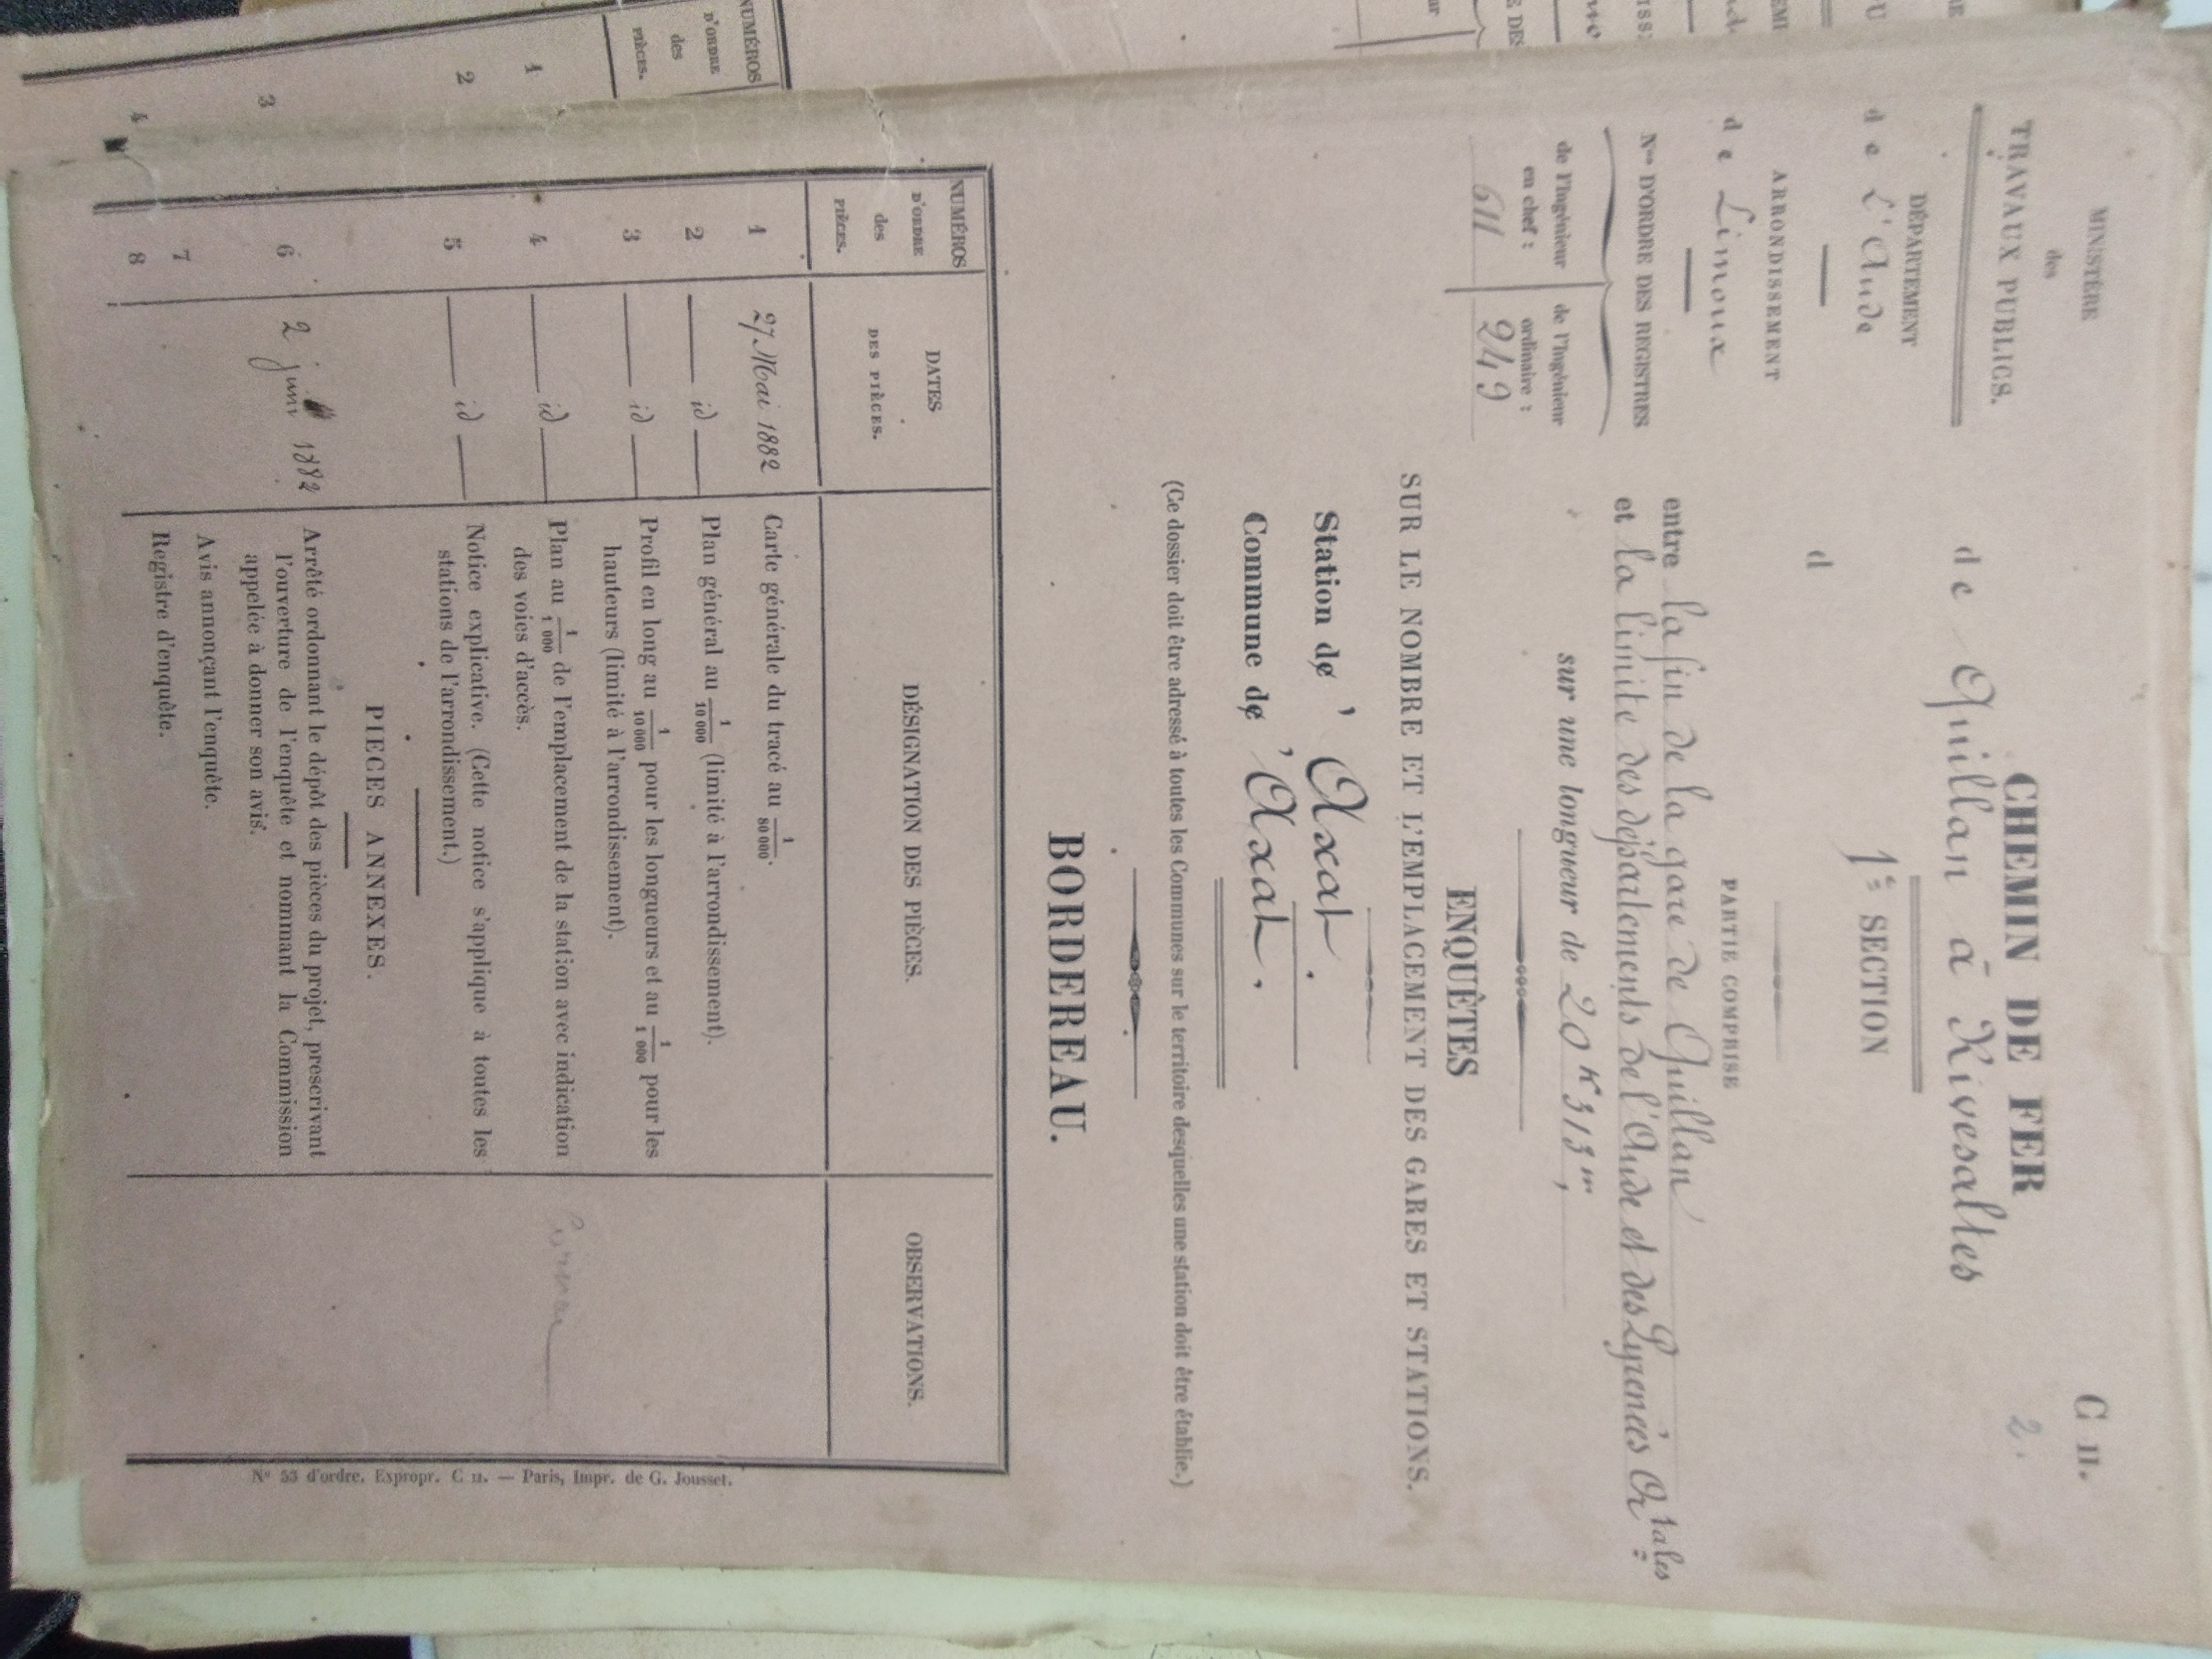 MINISTÈRE
des
TRAVAUX PUBLICS.
DÉPARTEMENT
de L'Aude
ARRONDISSEMENT
de Limoux
Nos D'ORDRE DES REGISTRES
de l'Ingénieur en chef :
611
de l'Ingénieur ordinaire :
249
C II.
2.
CHEMIN DE FER
de Quillan à Rivesaltes
1e SECTION
d
PARTIE COMPRISE
entre la fin de la gare de Quillan
et la limite des départements de l'Aude et des Pyrenées Ortales
sur une longueur de 20K313m,
ENQUÊTES
SUR LE NOMBRE ET L'EMPLACEMENT DES GARES ET STATIONS.
Station de ' Axat.
Commune de ' Axat.
(Ce dossier doit être adressé à toutes les Communes sur le territoire desquelles une station doit être établie.)
BORDEREAU.
NUMÉROS D'ORDRE des PIÈCES.
DATES DES PIÈCES.
DÉSIGNATION DES PIÈCES.
OBSERVATIONS.
1 27 Mai 1882 Carte générale du tracé au 1/80 000.
2 id Plan général au 1/10 000 (limité à l'arrondissement).
3 id Profil en long au 1/10 000 pour les longueurs et au 1/1 000 pour les
hauteurs (limité à l'arrondissement).
4 id Plan au 1/1 000 de l'emplacement de la station avec indication
des voies d'accès.
5 id Notice explicative. (Cette notice s'applique à toutes les
stations de l'arrondissement.)
PIECES ANNEXES.
6 2 juin 1882 Arrêté ordonnant le dépôt des pièces du projet, prescrivant
l'ouverture de l'enquête et nommant la Commission
appelée à donner son avis.
7 Avis annonçant l'enquête.
8 Registre d'enquête.
No 53 d'ordre. Expropr. C II. — Paris, Impr. de G. Jousset.
NUMÉROS
D'ORDRE
des
PIÈCES.
1
2
3
4